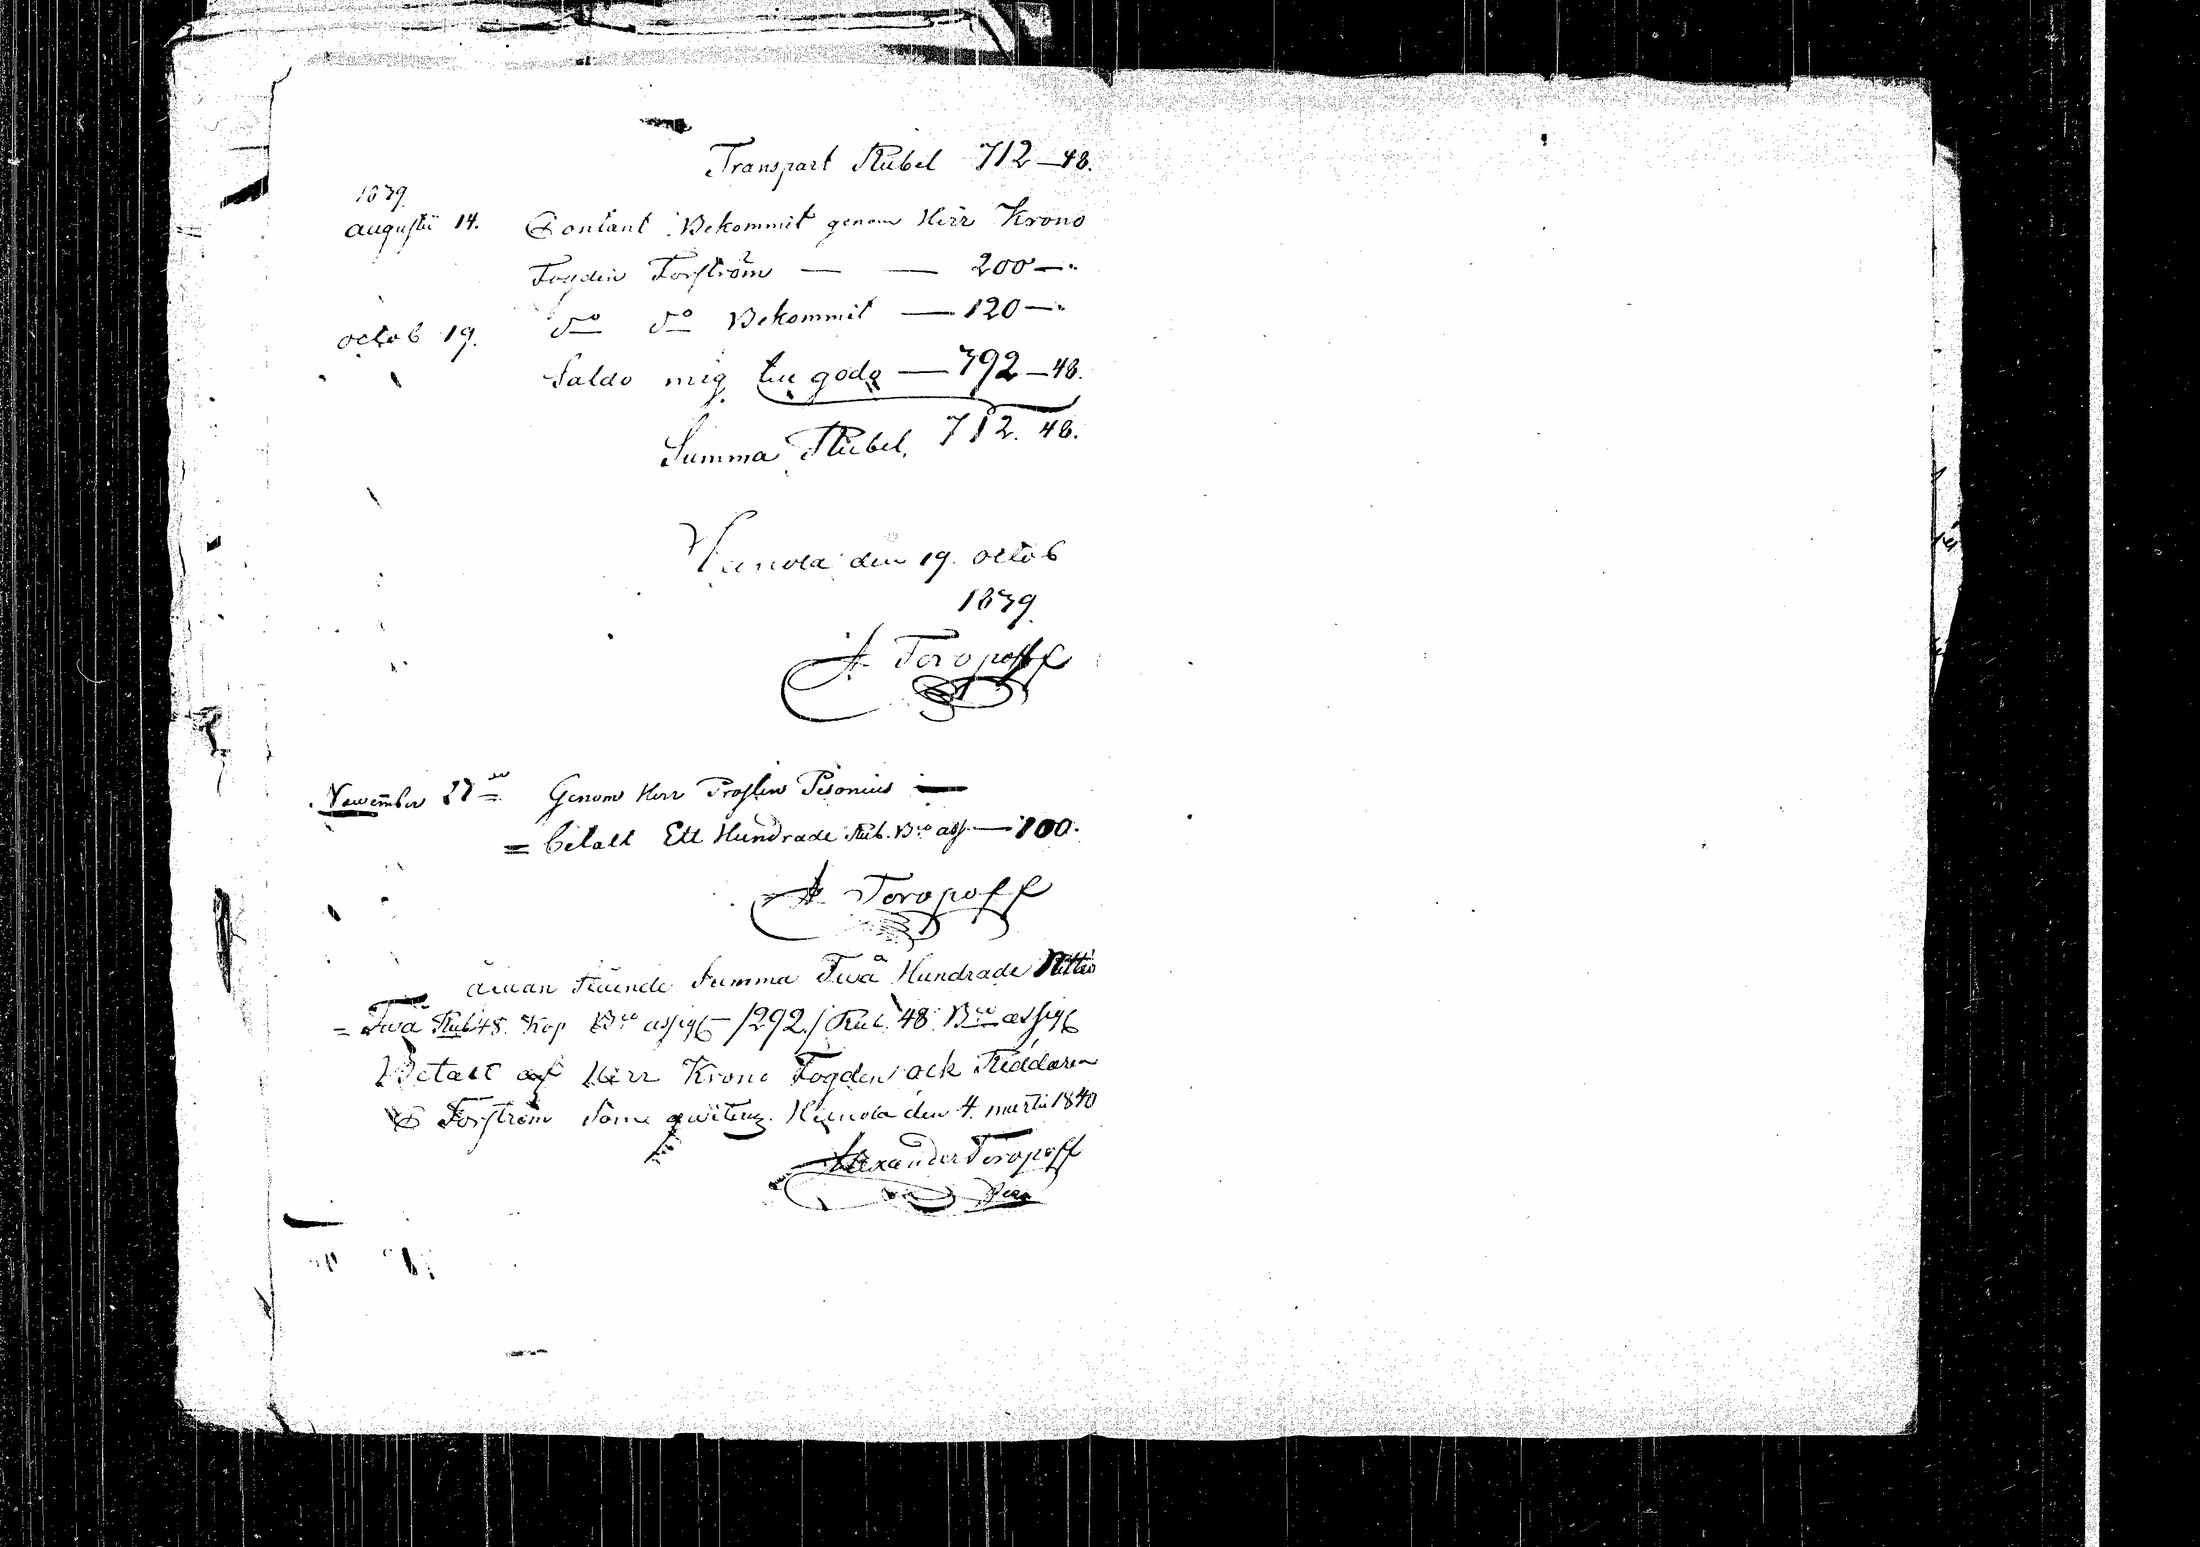 Transpart Rubel 712—48.
1839.
augustii 14. Contant Bekommit genom Herr Krono
Fogden Forström — — 200—"
octob 19. do do Bekommit — 120—"
Saldo mig till godo — 392—48.
Summa Rubel. 712. 48.
Heinola den 19. octob
1839.
A. Toropoff
November 27de Genom Herr Prosten Pesonius —
= betalt Ett Hundrade Rub. Bco ass. — 100.
A. Toropoff
åwan stående Summa Twå Hundrade Nittio
= Twå Rub 48. Kop Bco assig — /292./ Rub. 48. Bco assig
Betalt af Herr Krono Fogden ock Riddaren
Forström Som qwiteras. Heinola den 4. martii 1840
Alexander Toropoff